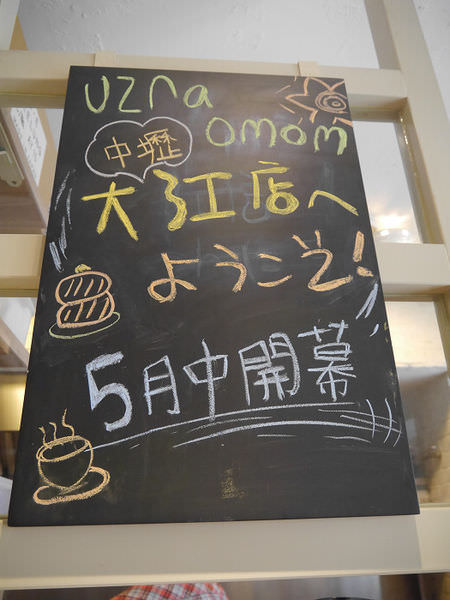 uzna
omom
中壢
大江店へ
ようこそ!
5月中開幕